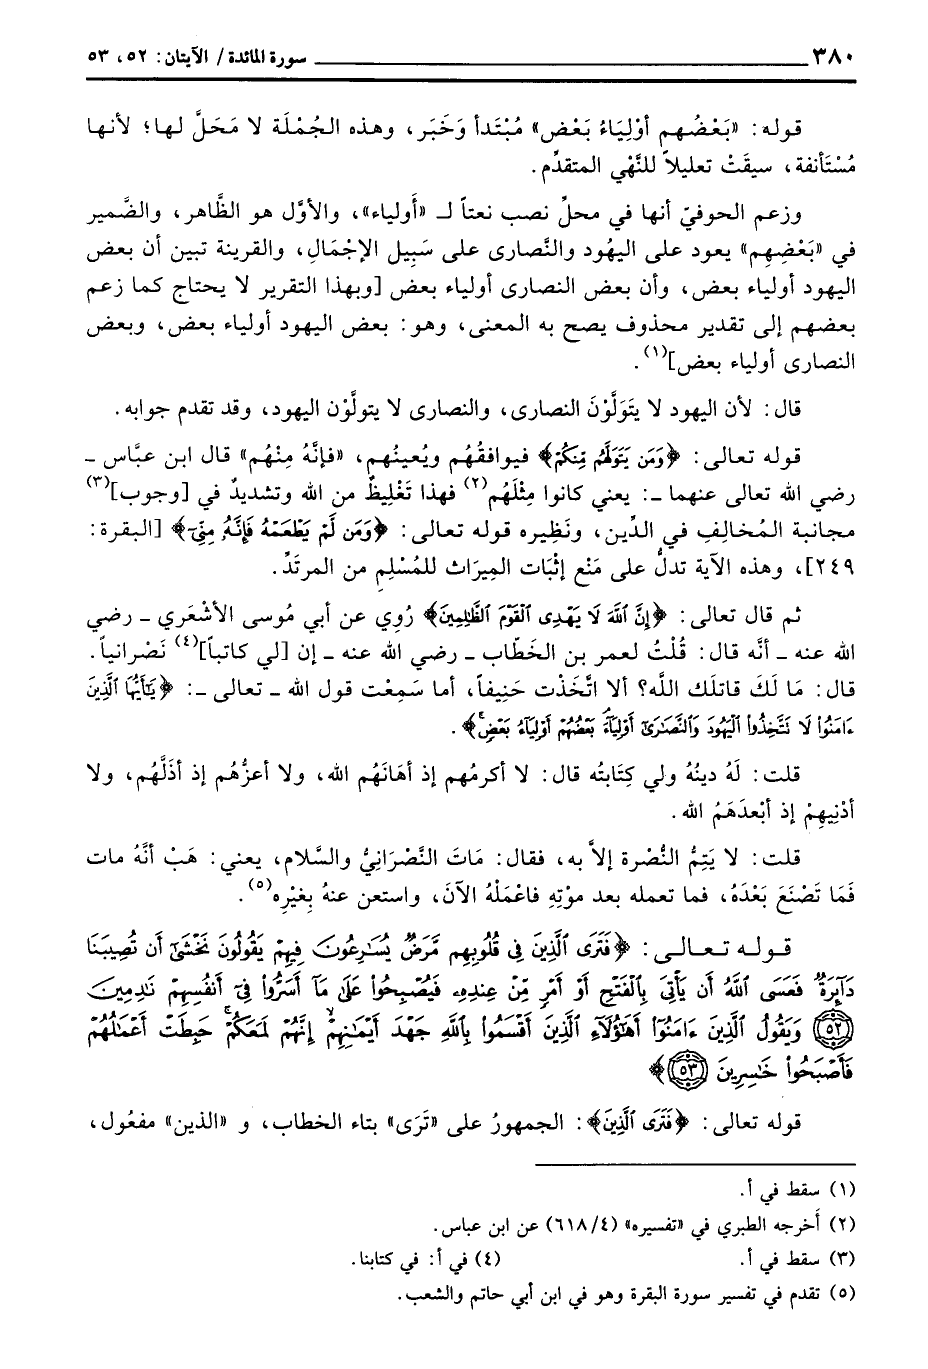 ٣٨٠ سورة المائدة / الآيتان: ٥٢، ٥٣
قوله: «بَعْضُهم أوْلِيَاءُ بَعْض» مُبْتَدأ وَخَبَر، وهذه الجُمْلَة لا مَحَلَّ لها؛ لأنها
مُسْتَأنفة، سيقَتْ تعليلاً للنَّهْي المتقدِّم.
وزعم الحوفيّ أنها في محلِّ نصب نعتاً لـ «أَولياء»، والأوَّل هو الظَّاهر، والضَّمير
في «بَعْضِهِم» يعود على اليهُود والنَّصارى على سَبِيل الإجْمَالِ، والقرينة تبين أن بعض
اليهود أولياء بعض، وأن بعض النصارى أولياء بعض [وبهذا التقرير لا يحتاج كما زعم
بعضهم إلى تقدير محذوف يصح به المعنى، وهو: بعض اليهود أولياء بعض، وبعض
النصارى أولياء بعض](١).
قال: لأن اليهود لا يتَوَلَّوْنَ النصارى، والنصارى لا يتولَّوْن اليهود، وقد تقدم جوابه.
قوله تعالى: ﴿وَمَن يَتَوَلَّهُم مِّنكُمْ﴾ فيوافقُهُم ويُعينُهُم، «فإنَّهُ مِنْهُم» قال ابن عبَّاس -
رضي الله تعالى عنهما -: يعني كانوا مِثْلَهُم(٢) فهذا تَغْلِيظٌ من الله وتشديدٌ في [وجوب](٣)
مجانبة المُخالِفِ في الدِّين، ونَظِيره قوله تعالى: ﴿وَمَن لَّمْ يَطْعَمْهُ فَإِنَّهُ مِنِّي﴾ [البقرة:
٢٤٩]، وهذه الآية تدلُّ على مَنْع إثْبَات المِيرَاث للمُسْلِمِ من المرتَدِّ.
ثم قال تعالى: ﴿إِنَّ اللَّهَ لَا يَهْدِى الْقَوْمَ الظَّالِمِينَ﴾ رُوِي عن أبي مُوسى الأشْعَري - رضي
الله عنه - أنَّه قال: قُلْتُ لعمر بن الخَطَّاب - رضي الله عنه - إن [لي كاتباً](٤) نَصْرانياً.
قال: مَا لَكَ قاتلَك اللَّه؟ ألا اتَّخَذْت حَنِيفاً، أما سَمِعْت قول الله - تعالى -: ﴿يَٰٓأَيُّهَا الَّذِينَ
ءَامَنُوا۟ لَا تَتَّخِذُوا۟ الْيَهُودَ وَالنَّصَٰرَىٰٓ أَوْلِيَآءَ بَعْضُهُمْ أَوْلِيَآءُ بَعْضٍ﴾.
قلت: لَهُ دينُهُ ولي كِتَابتُه قال: لا أكرمُهم إذ أهَانَهُم الله، ولا أعزُّهُم إذ أذَلَّهُم، ولا
أدْنِيهِمْ إذ أبْعدَهَمُ الله.
قلت: لا يَتِمُّ النُّصْرة إلاَّ به، فقال: مَاتَ النَّصْرَانِيُّ والسَّلام، يعني: هَبْ أنَّهُ مات
فَمَا تَصْنَعَ بَعْدَهُ، فما تعمله بعد موْتِهِ فاعْمَلْهُ الآنَ، واستعن عنهُ بِغيْرِه(٥).
قوله تعالى: ﴿فَتَرَى الَّذِينَ فِى قُلُوبِهِم مَّرَضٌ يُسَٰرِعُونَ فِيهِمْ يَقُولُونَ نَخْشَىٰٓ أَن تُصِيبَنَا
دَآئِرَةٌ فَعَسَى اللَّهُ أَن يَأْتِىَ بِالْفَتْحِ أَوْ أَمْرٍ مِّنْ عِندِهِۦ فَيُصْبِحُوا۟ عَلَىٰ مَآ أَسَرُّوا۟ فِىٓ أَنفُسِهِمْ نَٰدِمِينَ
(٥٢) وَيَقُولُ الَّذِينَ ءَامَنُوٓا۟ أَهَٰٓؤُلَآءِ الَّذِينَ أَقْسَمُوا۟ بِاللَّهِ جَهْدَ أَيْمَٰنِهِمْ إِنَّهُمْ لَمَعَكُمْ حَبِطَتْ أَعْمَٰلُهُمْ
فَأَصْبَحُوا۟ خَٰسِرِينَ (٥٣)﴾
قوله تعالى: ﴿فَتَرَى الَّذِينَ﴾: الجمهورُ على «تَرَى» بتاء الخطاب، و «الذين» مفعُول،
(١) سقط في أ.
(٢) أخرجه الطبري في «تفسيره» (٦١٨/٤) عن ابن عباس.
(٣) سقط في أ. (٤) في أ: في كتابنا.
(٥) تقدم في تفسير سورة البقرة وهو في ابن أبي حاتم والشعب.